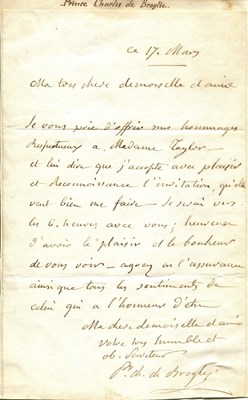 Prince Charles de Broglie.
ce 17. Mars
Ma tres chere demoiselle et amie
Je vous prie d'offrir mes hommages
Respectueux a Madame Taylor
et lui dire que j'accepte avec plaisir
et Reconnoissance l'invitation, qu'elle
veut bien me faire - Je serai vers
les 6. heures avec vous; heureux
d'avoir le plaisir et le bonheur
de vous voir - agréez en l'assurance
ainsi que tous les sentiments de
celui qui a l'honneur d'être
Ma chere demoiselle et amie
votre tres humble et
ob. Serviteur
Pce ch. de Broglie